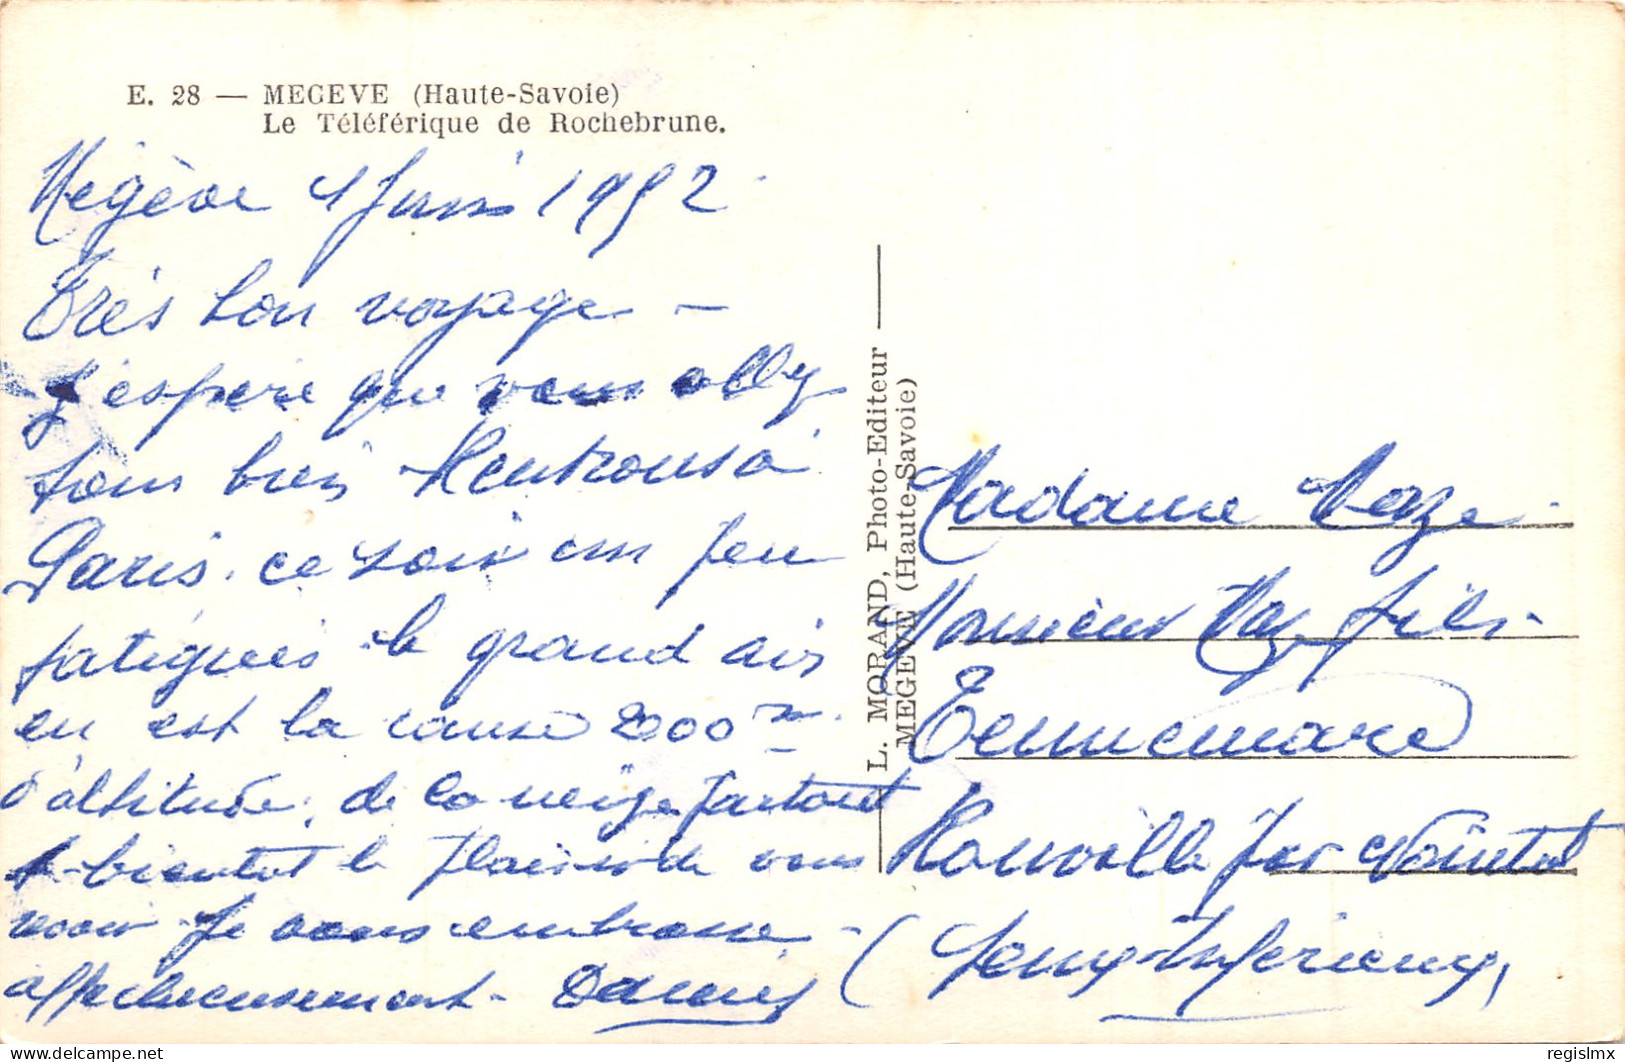 E. 28 — MEGEVE (Haute-Savoie)
Le Téléférique de Rochebrune.
Megève 1 Juin 1952
Très bon voyage —
J'espere que vous allez
tous bien Rentrons à
Paris. ce soir un peu
fatigués le grand air
en est la cause 2000 m.
d'altitude, de la neige partout
A bientot le plaisir de vous
voir Je vous embrasse —
affectueusement -
L. MORAND, Photo-Editeur
MEGEVE (Haute-Savoie)
Madame Maze
Monsieur Maze fils
Tennemare
Manville par Nointot
(Seine-Inferieure)
delcampe.net
regislmx